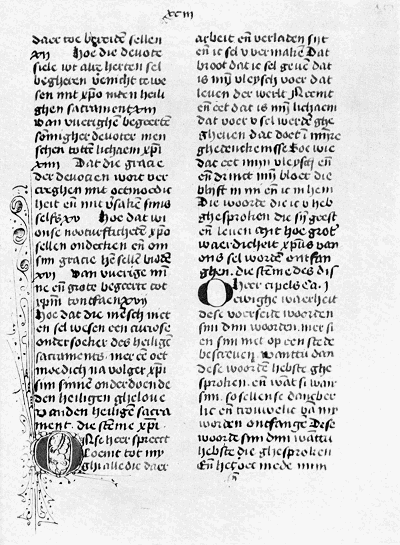 xciii
daer toe bereiden sellen
xij Hoe die devote
siele wt alre herten sel
begheren vemicht te we
sen mit xpo in den heili
ghen sacrament xiii
van vuerighen begeerten
somigher devoter men
schen totten lichaem xpi
xiiii Dat die gracie
der devocien wort ver
creghen mit oetmoedic
heit en mit vsakinge sijns
selfs xv Hoe dat wi
onse nooturfticheit xpo
sellen ondecken en om
sijn gracie hem sellen bidden
xvi van vuerige mi
ne en grote begeerte tot
xpum tontfaen xvii
Hoe dat die mensch niet
en sel wesen een curiose
ondersoeker des heiligen
sacraments mer een oet
moedich na volger xpi
sijn sinnen onderdoende
den heiligen ghelove
vanden heiligen sacra
ment die stemme xpi
Onse heer spreect
Coemt tot my
ghi alle die daer
arbeit en verladen sijt
en ic sel v vermaken Dat
broot dat ic sel geven dat
is mijn vleysch voer dat
leven der werlt Neemt
en eet dat is mijn lichaem
dat voer v sel werden ghe
gheven dat doet in mijnre
ghedenckenisse Soe wie
dat eet mijn vleysch en
en drinct mijn bloet die
blijft in mi en ic in hem
Die woorde die ic v heb
ghesproken sijn geest
en leven Mit hoe groter
waerdicheit xpus van
ons sel worden ontfan
ghen die stemme des dis
O heer cipels Ca. i
ewighe waerheit
dese voerseide woorden
sijn dijn woorden mer si
en sijn niet op een stede
bescreven want tu dan
dese woorden hebste ghe
sproken en want si waer
sijn so sellense dancber
lic en trouwelic van my
worden ontfangen Dese
woorde sijn dijn want tu
hebste die ghesproken
En het oec mede mijn